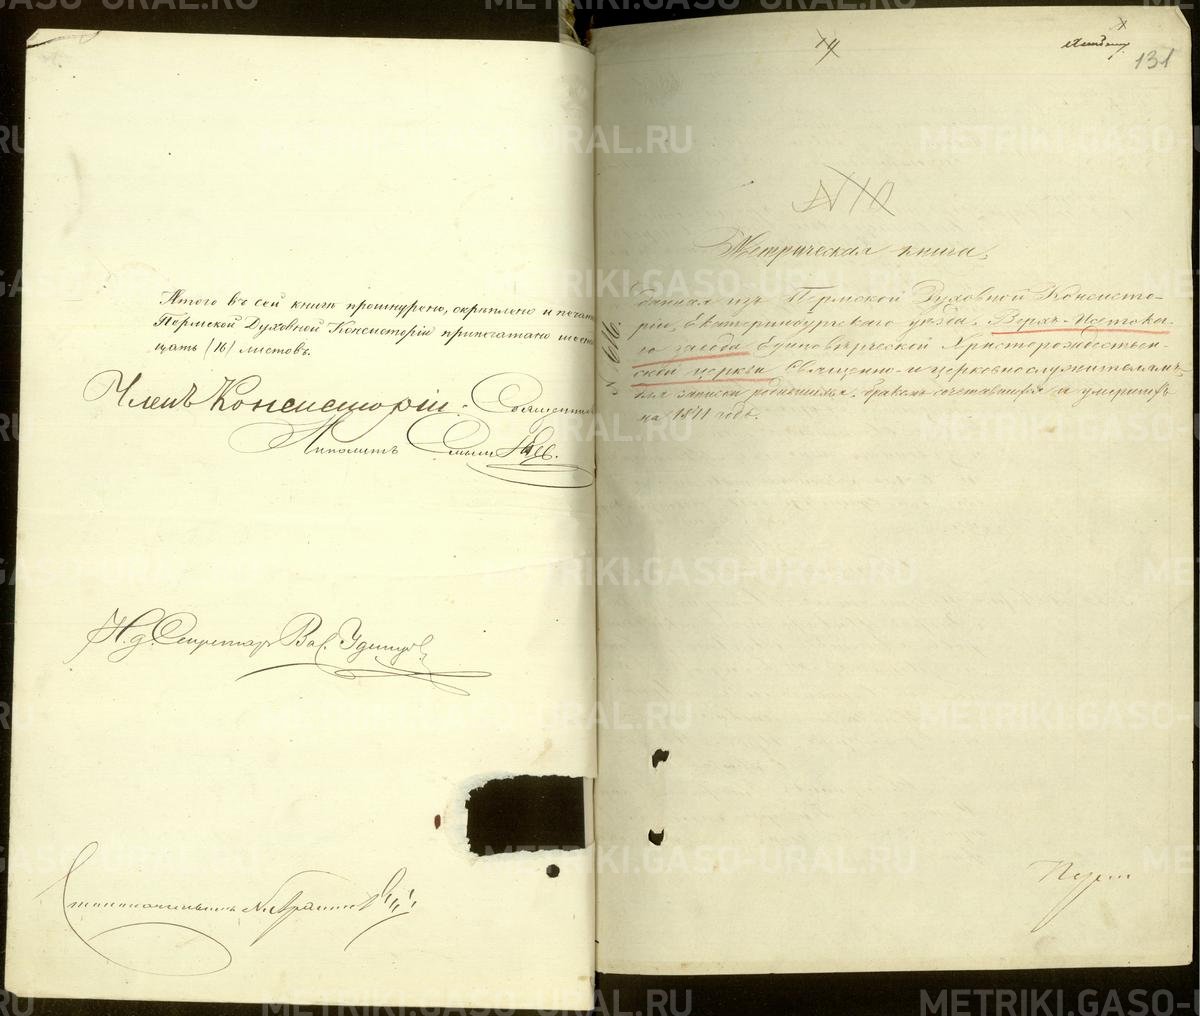 Итого въ сей книгѣ прошнуровано, скрѣплено и печатью
Пермской Духовной Консисторіи припечатано шестнад
цать (16) листовъ.
Членъ Консисторіи: Священникъ
Ипполитъ
И. д. Секретаря Вас. Удинцовъ
Столоначальникъ
131
№ 10
Метрическая книга,
данная изъ Пермской Духовной Консисто-
ріи, Екатеринбургскаго уѣзда, Верхъ-Истокска-
го завода Единовѣрческой Христорождествен-
ской церкви Священно- и церковнослужителямъ,
для записи родившихся, бракомъ сочетавшихся и умершихъ
на 1871 годъ.
№ 616.
METRIKI.GASO-URAL.RU